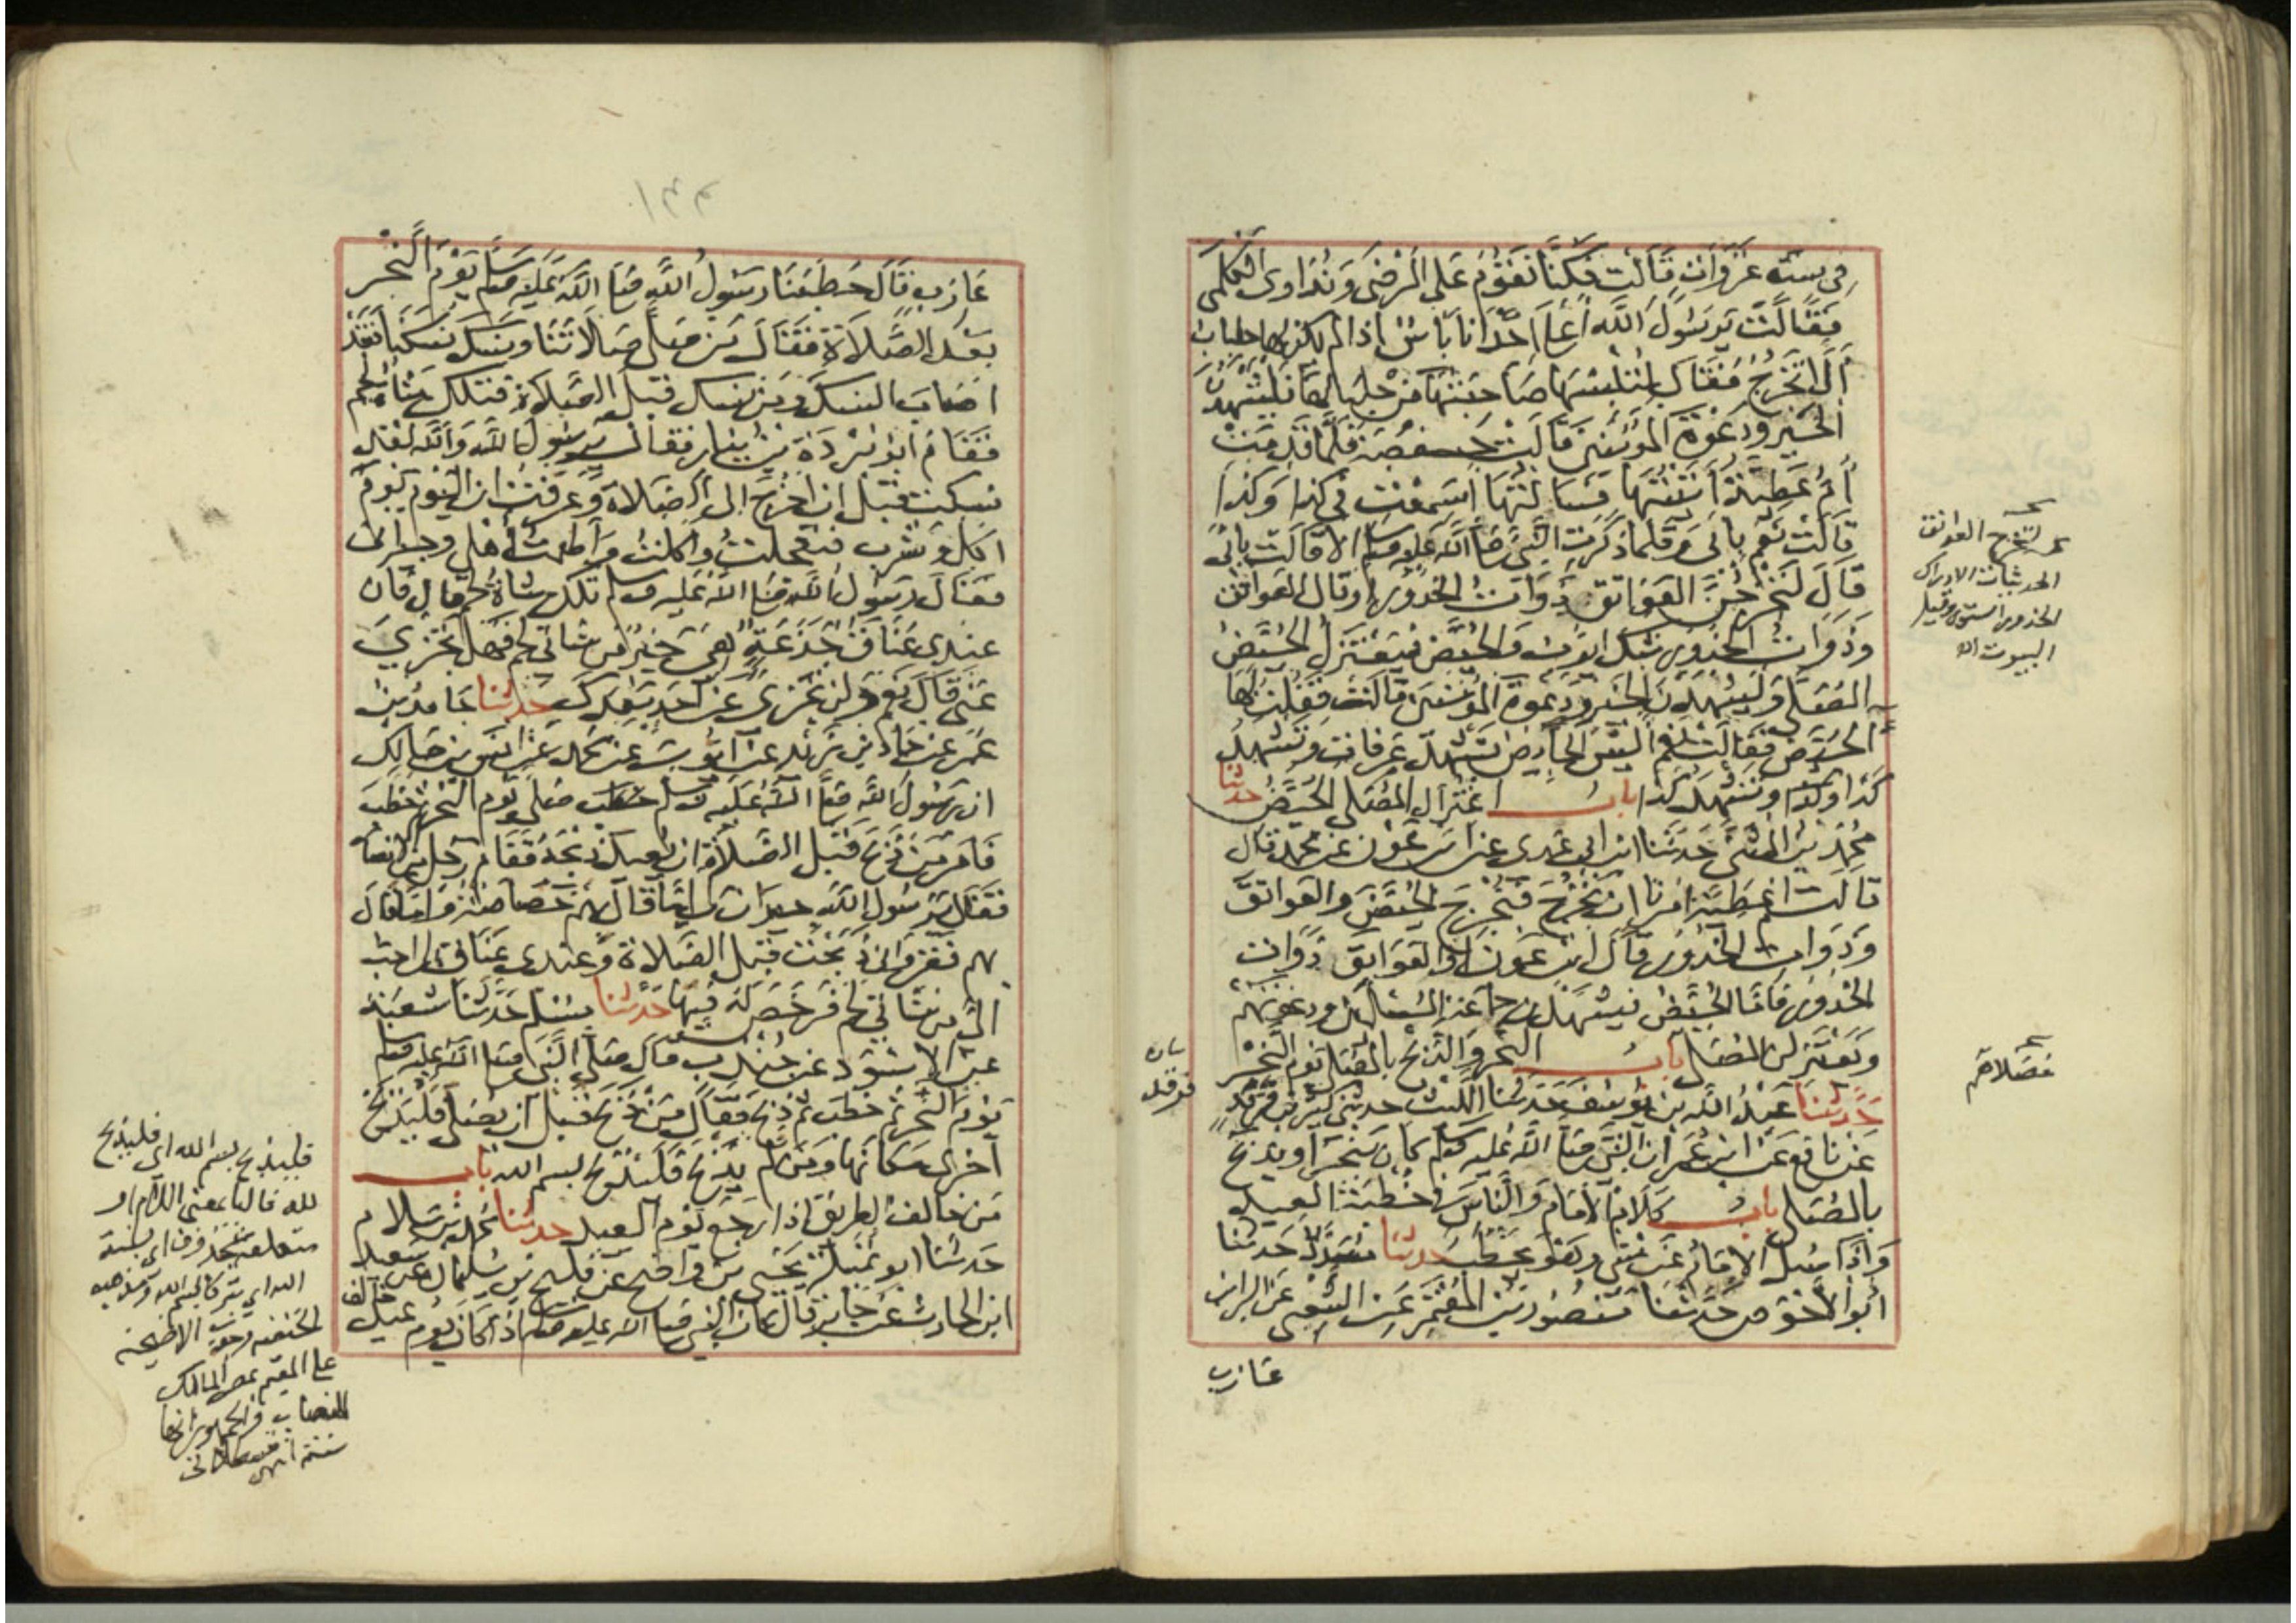 في ستة غزوات قالت فكنا نقوم على المرضى ونداوى الكلمى
فقالت يرسول الله أعلى احدانا باس اذا لم يكن لها جلباب
ألا تخرج فقال لتلبسها صاحبتها من جلبابها فليشهدن
الخير ودعوة المؤمنين قالت حفصة فلما قدمت
أم عطية أتيتها فسالتها اسمعت في كذا وكذا
قالت نعم بابى وقلما ذكرت النبي صلى الله عليه وسلم الا قالت بابى
قال لتخرجن العواتق ذوات الخدور او قال العواتق
وذوات الخدور شك ايوب والحيض فيعتزل الحيض
المصلى وليشهدن الخير ودعوة المؤمنين قالت فقلت لها
الحيض فقالت نعم اليس الحايض تشهد عرفات وتشهد
كذا وكذا وتشهد كذا باب اعتزال المصلى الحيض حدثنا
محمد بن المثنى حدثنا ابن ابي عدى عن ابن عون عن محمد قال
قالت ام عطية امرنا ان نخرج فنخرج الحيض والعواتق
وذوات الخدور قال ابن عون او العواتق ذوات
الخدور فاما الحيض فيشهدن جماعة المسلمين ودعوتهم
ويعتزلن المصلى باب النحر والذبح بالمصلى يوم النحر
حدثنا عبد الله بن يوسف حدثنا الليث حدثنى كثير بن فرقد
عن نافع عن ابن عمر ان النبي صلى الله عليه وسلم كان ينحر او يذبح
بالمصلى باب كلام الامام والناس في خطبة العيد
واذا سئل الامام عن شى وهو يخطب حدثنا مسدد حدثنا
أبو الاحوص حدثنا منصور بن المعتمر عن الشعبى عن البراء بن
عازب
لتخرج العواتق
الخدور الستور وقيل
البيوت اه
مصلاهم
فرقد
١٣٣
عازب قال خطبنا رسول الله صلى الله عليه وسلم يوم النحر
بعد الصلاة فقال من صلى صلاتنا ونسك نسكنا فقد
اصاب النسك ومن نسك قبل الصلاة فتلك شاة لحم
فقام ابو بردة بن نيار فقال يرسول الله والله لقد
نسكت قبل ان اخرج الى الصلاة وعرفت ان اليوم يوم
اكل وشرب فتعجلت واكلت وأطعمت أهلى وجيرانى
فقال رسول الله صلى الله عليه وسلم تلك شاة لحم قال فان
عندى عناق جذعة لهى خير من شاتى لحم فهل تجزي
عنى قال نعم ولن تجزى عن احد بعدك حدثنا حامد بن
عمر عن حماد بن زيد عن ايوب عن محمد عن انس بن مالك
ان رسول الله صلى الله عليه وسلم صلى يوم النحر ثم خطب
فامر من ذبح قبل الصلاة ان يعيد ذبحه فقام رجل من الانصار
فقال يرسول الله جيران لى اما قال بهم خصاصة واما قال
بهم فقر وانى ذبحت قبل الصلاة وعندى عناق لى احب
الى من شاتى لحم فرخص له فيها حدثنا مسلم حدثنا شعبة
عن الاسود عن جندب قال صلى النبي صلى الله عليه وسلم
يوم النحر ثم خطب ثم ذبح فقال من ذبح قبل ان يصلى فليذبح
أخرى مكانها ومن لم يذبح فليذبح بسم الله باب
من خالف الطريق اذا رجع يوم العيد حدثنا محمد بن سلام
حدثنا ابو تميلة يحيى بن واضح عن فليح بن سليمان عن سعيد
ابن الحارث عن جابر قال كان النبي صلى الله عليه وسلم اذا كان يوم عيد خالف
فليذبح بسم الله اى فليذبح
لله فالبا بمعنى اللام او
متعلقة بمحذوف اى بسنة
الله او تبركا باسم الله ومذهب
الحنفية وجوب الاضحية
على المقيم بمصر المالك
للنصاب والجمهور انها
سنة انتهى قسطلانى